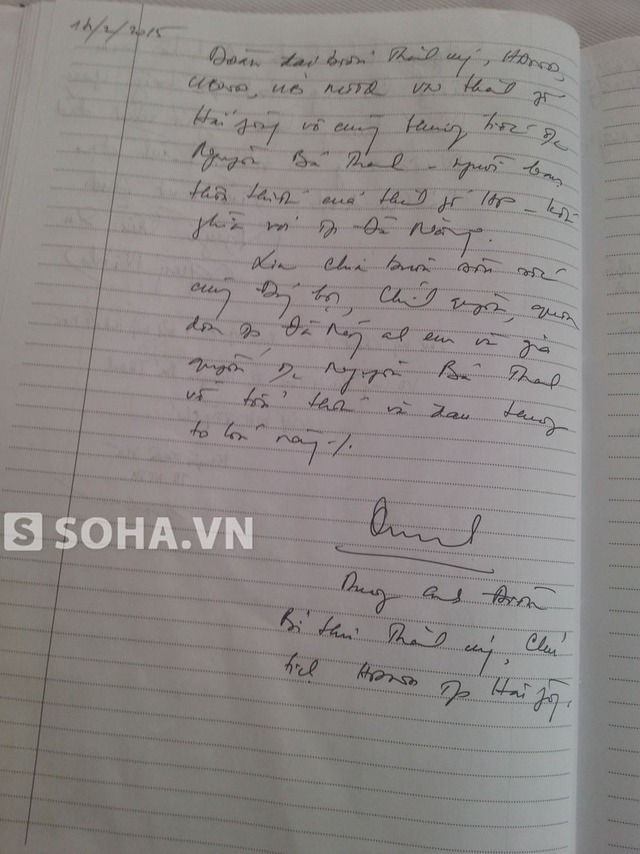 14/2/2015
Đoàn đại biểu Thành ủy, HĐND,
UBND, UB MTTQ VN thành phố
Hải Phòng vô cùng thương tiếc Đc
Nguyễn Bá Thanh - người bạn
thân thiết của thành phố HP - kết
nghĩa với Tp Đà Nẵng.
Xin chia buồn sâu sắc
cùng Đảng bộ, Chính quyền, quân
dân Tp Đà Nẵng anh em và gia
quyến Đc Nguyễn Bá Thanh
về tổn thất và đau thương
to lớn này./.
SOHA.VN
Dương Anh Điền
Bí thư Thành ủy, Chủ
tịch HĐND Tp Hải Phòng.